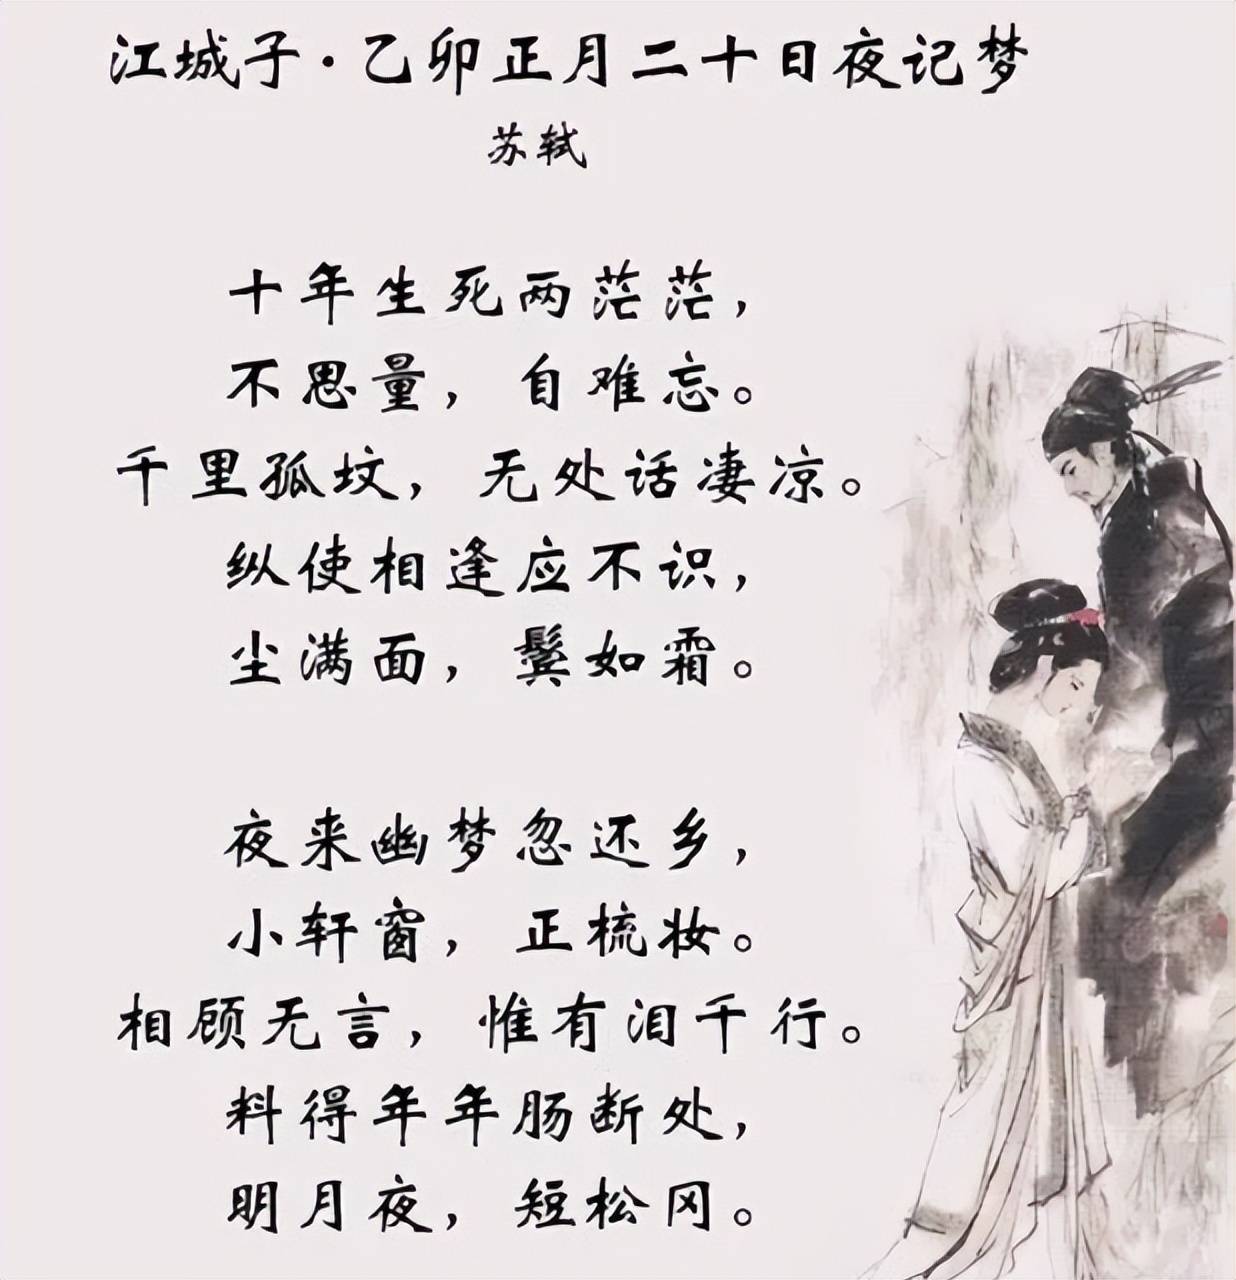 江城子·乙卯正月二十日夜记梦
苏轼
十年生死两茫茫，
不思量，自难忘。
千里孤坟，无处话凄凉。
纵使相逢应不识，
尘满面，鬓如霜。
夜来幽梦忽还乡，
小轩窗，正梳妆。
相顾无言，惟有泪千行。
料得年年肠断处，
明月夜，短松冈。